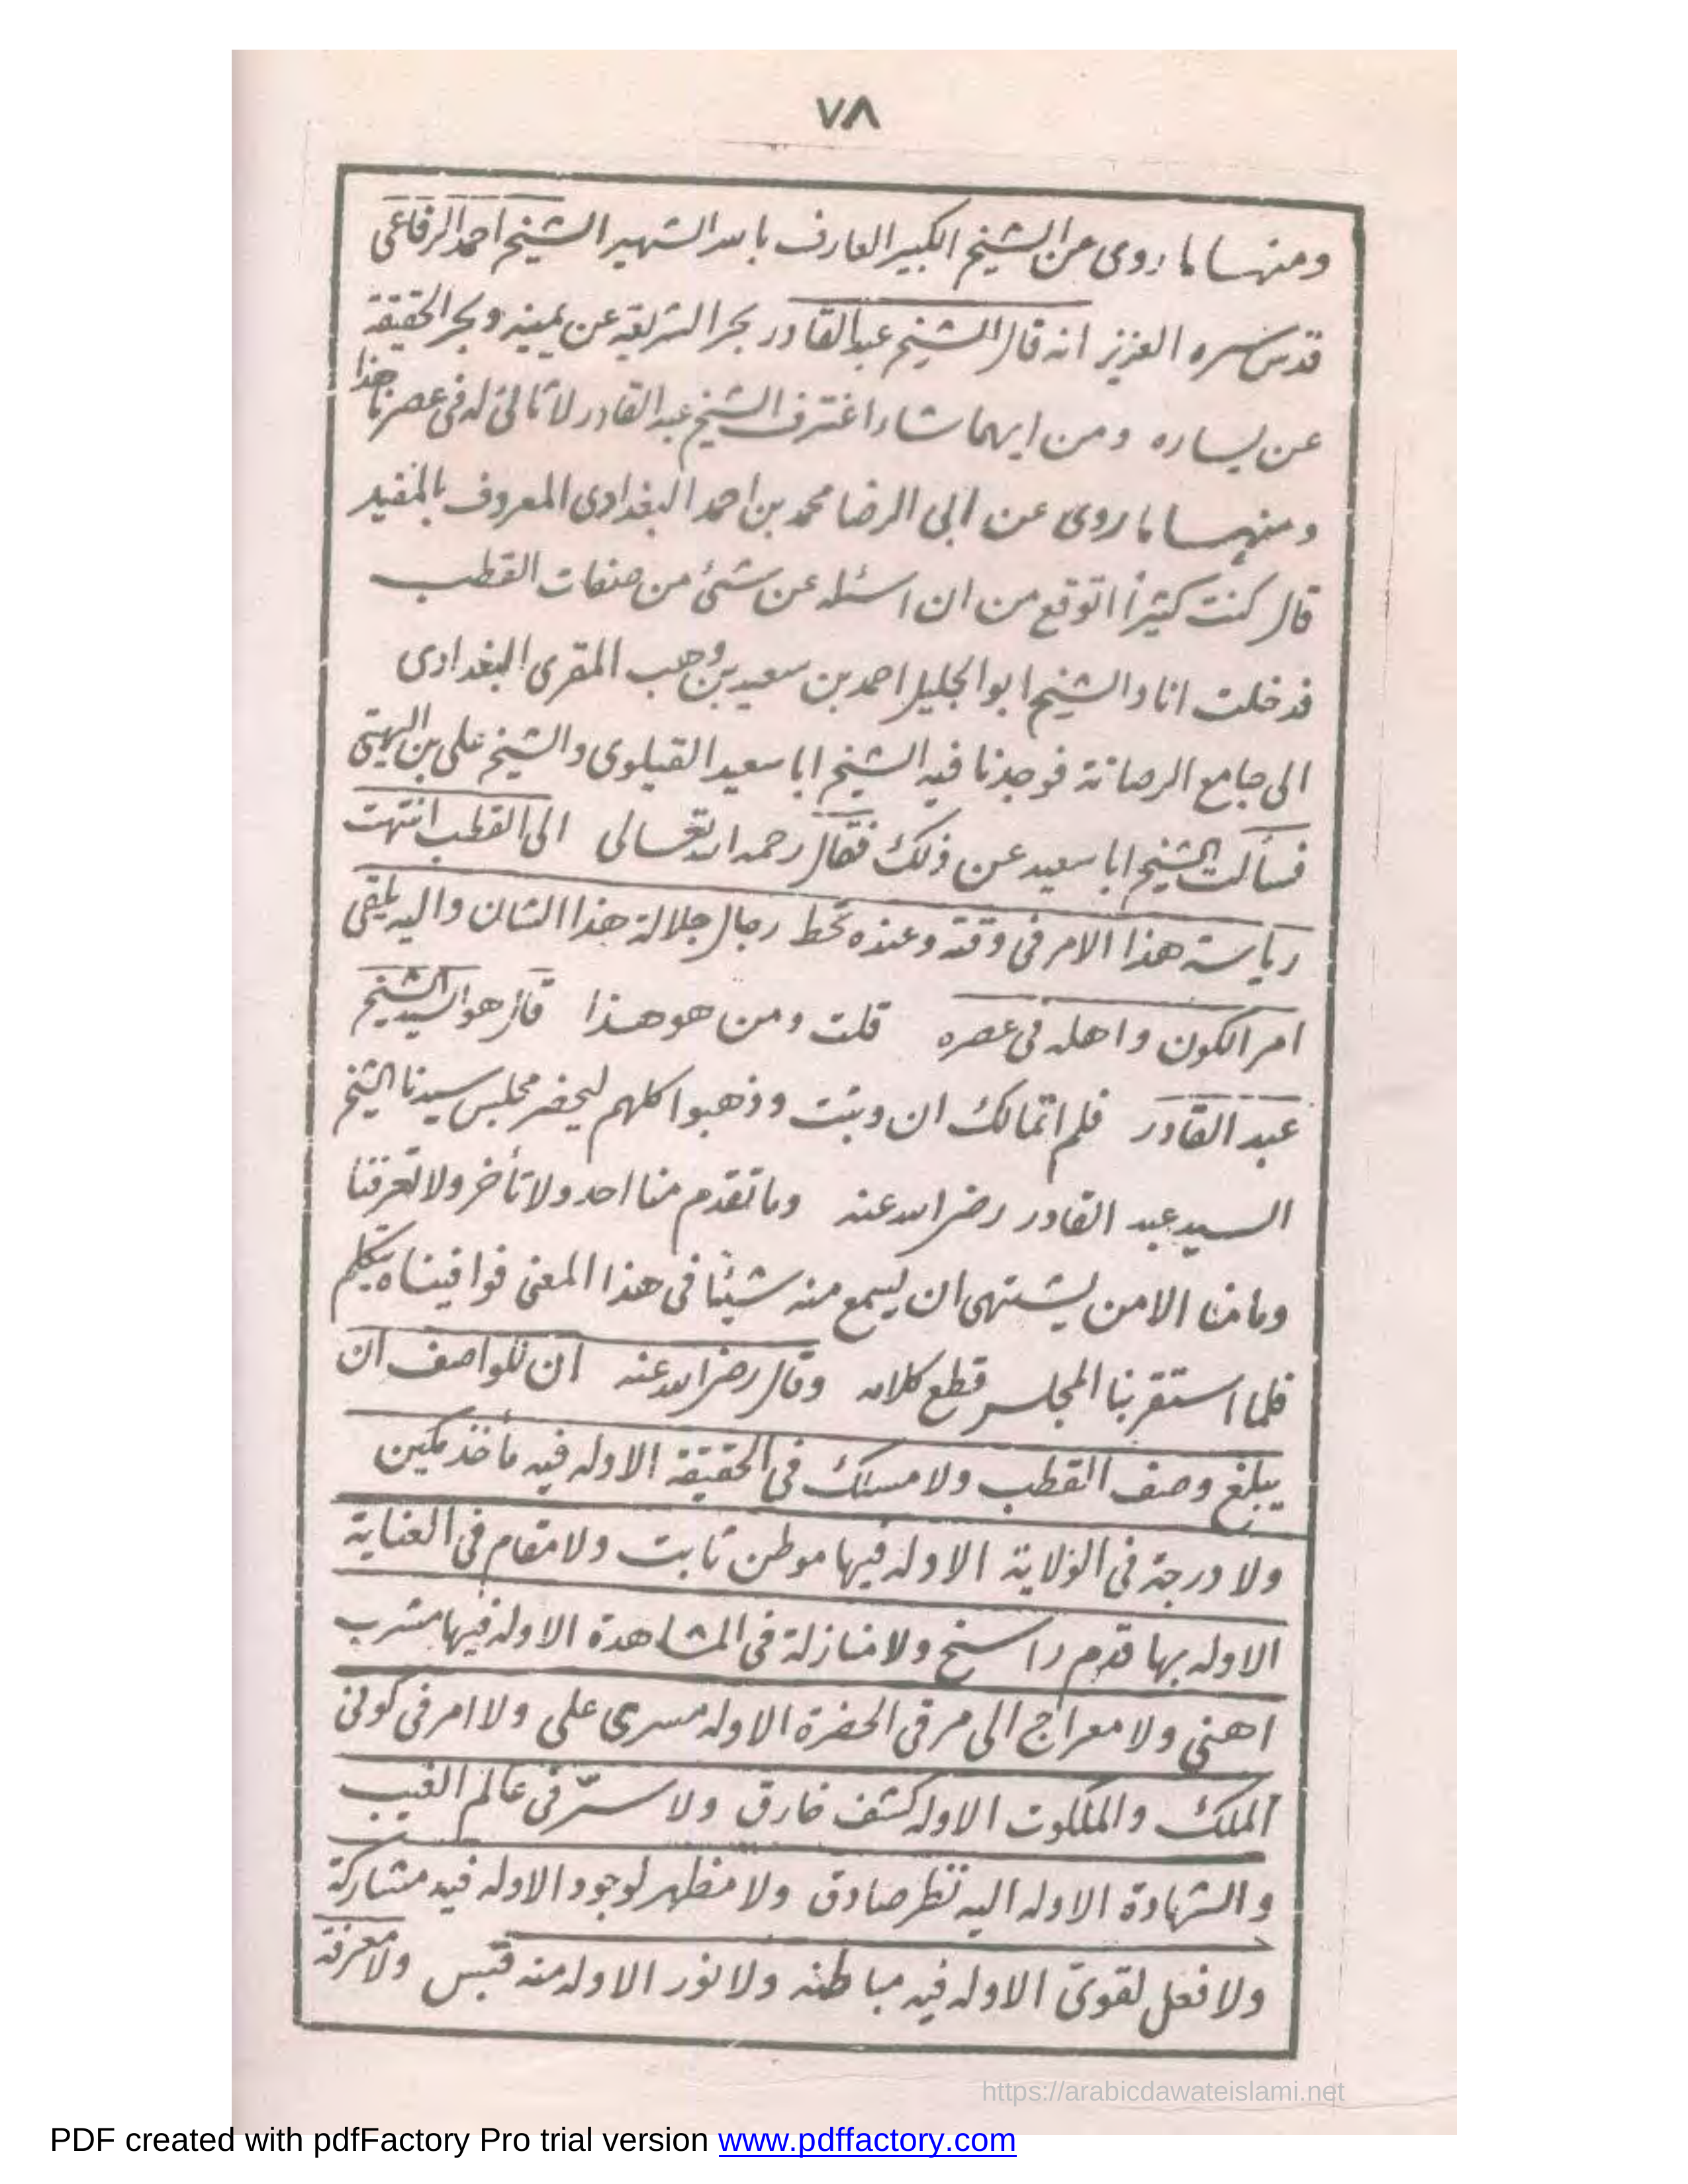 ٧٨
ومنها ما روى عن الشيخ الكبير العارف بالله الشهير الشيخ احمد الرفاعى
قدس سره العزيز انه قال الشيخ عبدالقادر بحر الشريعة عن يمينه وبحر الحقيقة
عن يساره ومن ايهما شاء اغترف الشيخ عبد القادر لا ثانى له فى عصرنا هذا
ومنها ما روى عن ابى الرضا محمد بن احمد البغدادى المعروف بالمفيد
قال كنت كثيرا اتوقع من ان اسئله عن شئ من صفات القطب
فدخلت انا والشيخ ابو الجليل احمد بن سعيد بن وهب المقرى البغدادى
الى جامع الرصافة فوجدنا فيه الشيخ ابا سعيد القيلوى والشيخ على بن الهيتى
فسألت الشيخ ابا سعيد عن ذلك فقال رحمه الله تعالى الى القطب انتهت
رياسة هذا الامر فى وقته وعنده تحط رجال جلالة هذا الشان واليه يلقى
امر الكون واهله فى عصره قلت ومن هو هذا قال هو السيد الشيخ
عبد القادر فلم اتمالك ان وثبت وذهبوا كلهم ليحضر مجلس سيدنا الشيخ
السيد عبد القادر رضى الله عنه وما تقدم منا احد ولا تأخر ولا تعرفنا
وما منا الا من يشتهى ان يسمع منه شيئا فى هذا المعنى فوافيناه يتكلم
فلما استقر بنا المجلس قطع كلامه وقال رضى الله عنه ان للواصف ان
يبلغ وصف القطب ولا مسلك فى الحقيقة الا وله فيه مأخذ مكين
ولا درجة فى الولاية الا وله فيها موطن ثابت ولا مقام فى العناية
الا وله بها قدم راسخ ولا منازلة فى المشاهدة الا وله فيها مشرب
اهنى ولا معراج الى مرقى الحضرة الا وله مسرى على ولا امر فى كونى
الملك والملكوت الا وله كشف خارق ولا سرّ فى عالم الغيب
والشهادة الا وله اليه نظر صادق ولا مظهر لوجود الا وله فيه مشاركة
ولا فعل لقوىّ الا وله فيه مباطنه ولا نور الا وله منه قبس ولا معرفة
https://arabicdawateislami.net
PDF created with pdfFactory Pro trial version www.pdffactory.com